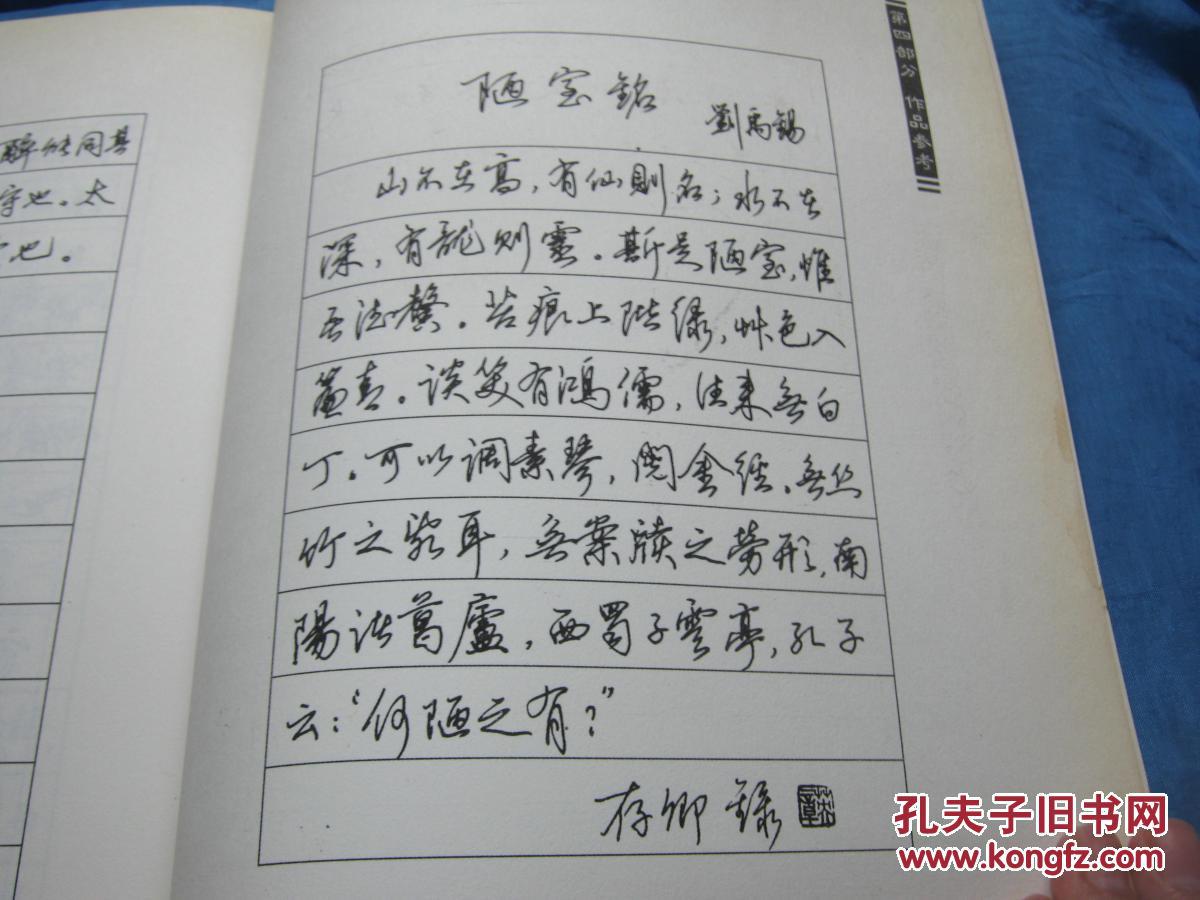 第四部分 作品参考
醉能同其
守也。太
也。
陋室銘
劉禹錫
山不在高，有仙則名；水不在
深，有龍则靈。斯是陋室，惟
吾德馨。苔痕上階緑，艸色入
簾青。谈笑有鴻儒，往来無白
丁。可以调素琴，閲金經。無丝
竹之亂耳，無案牘之勞形，南
陽诸葛廬，西蜀子雲亭，孔子
云：“何陋之有？”
存卿録
孔夫子旧书网
www.kongfz.com